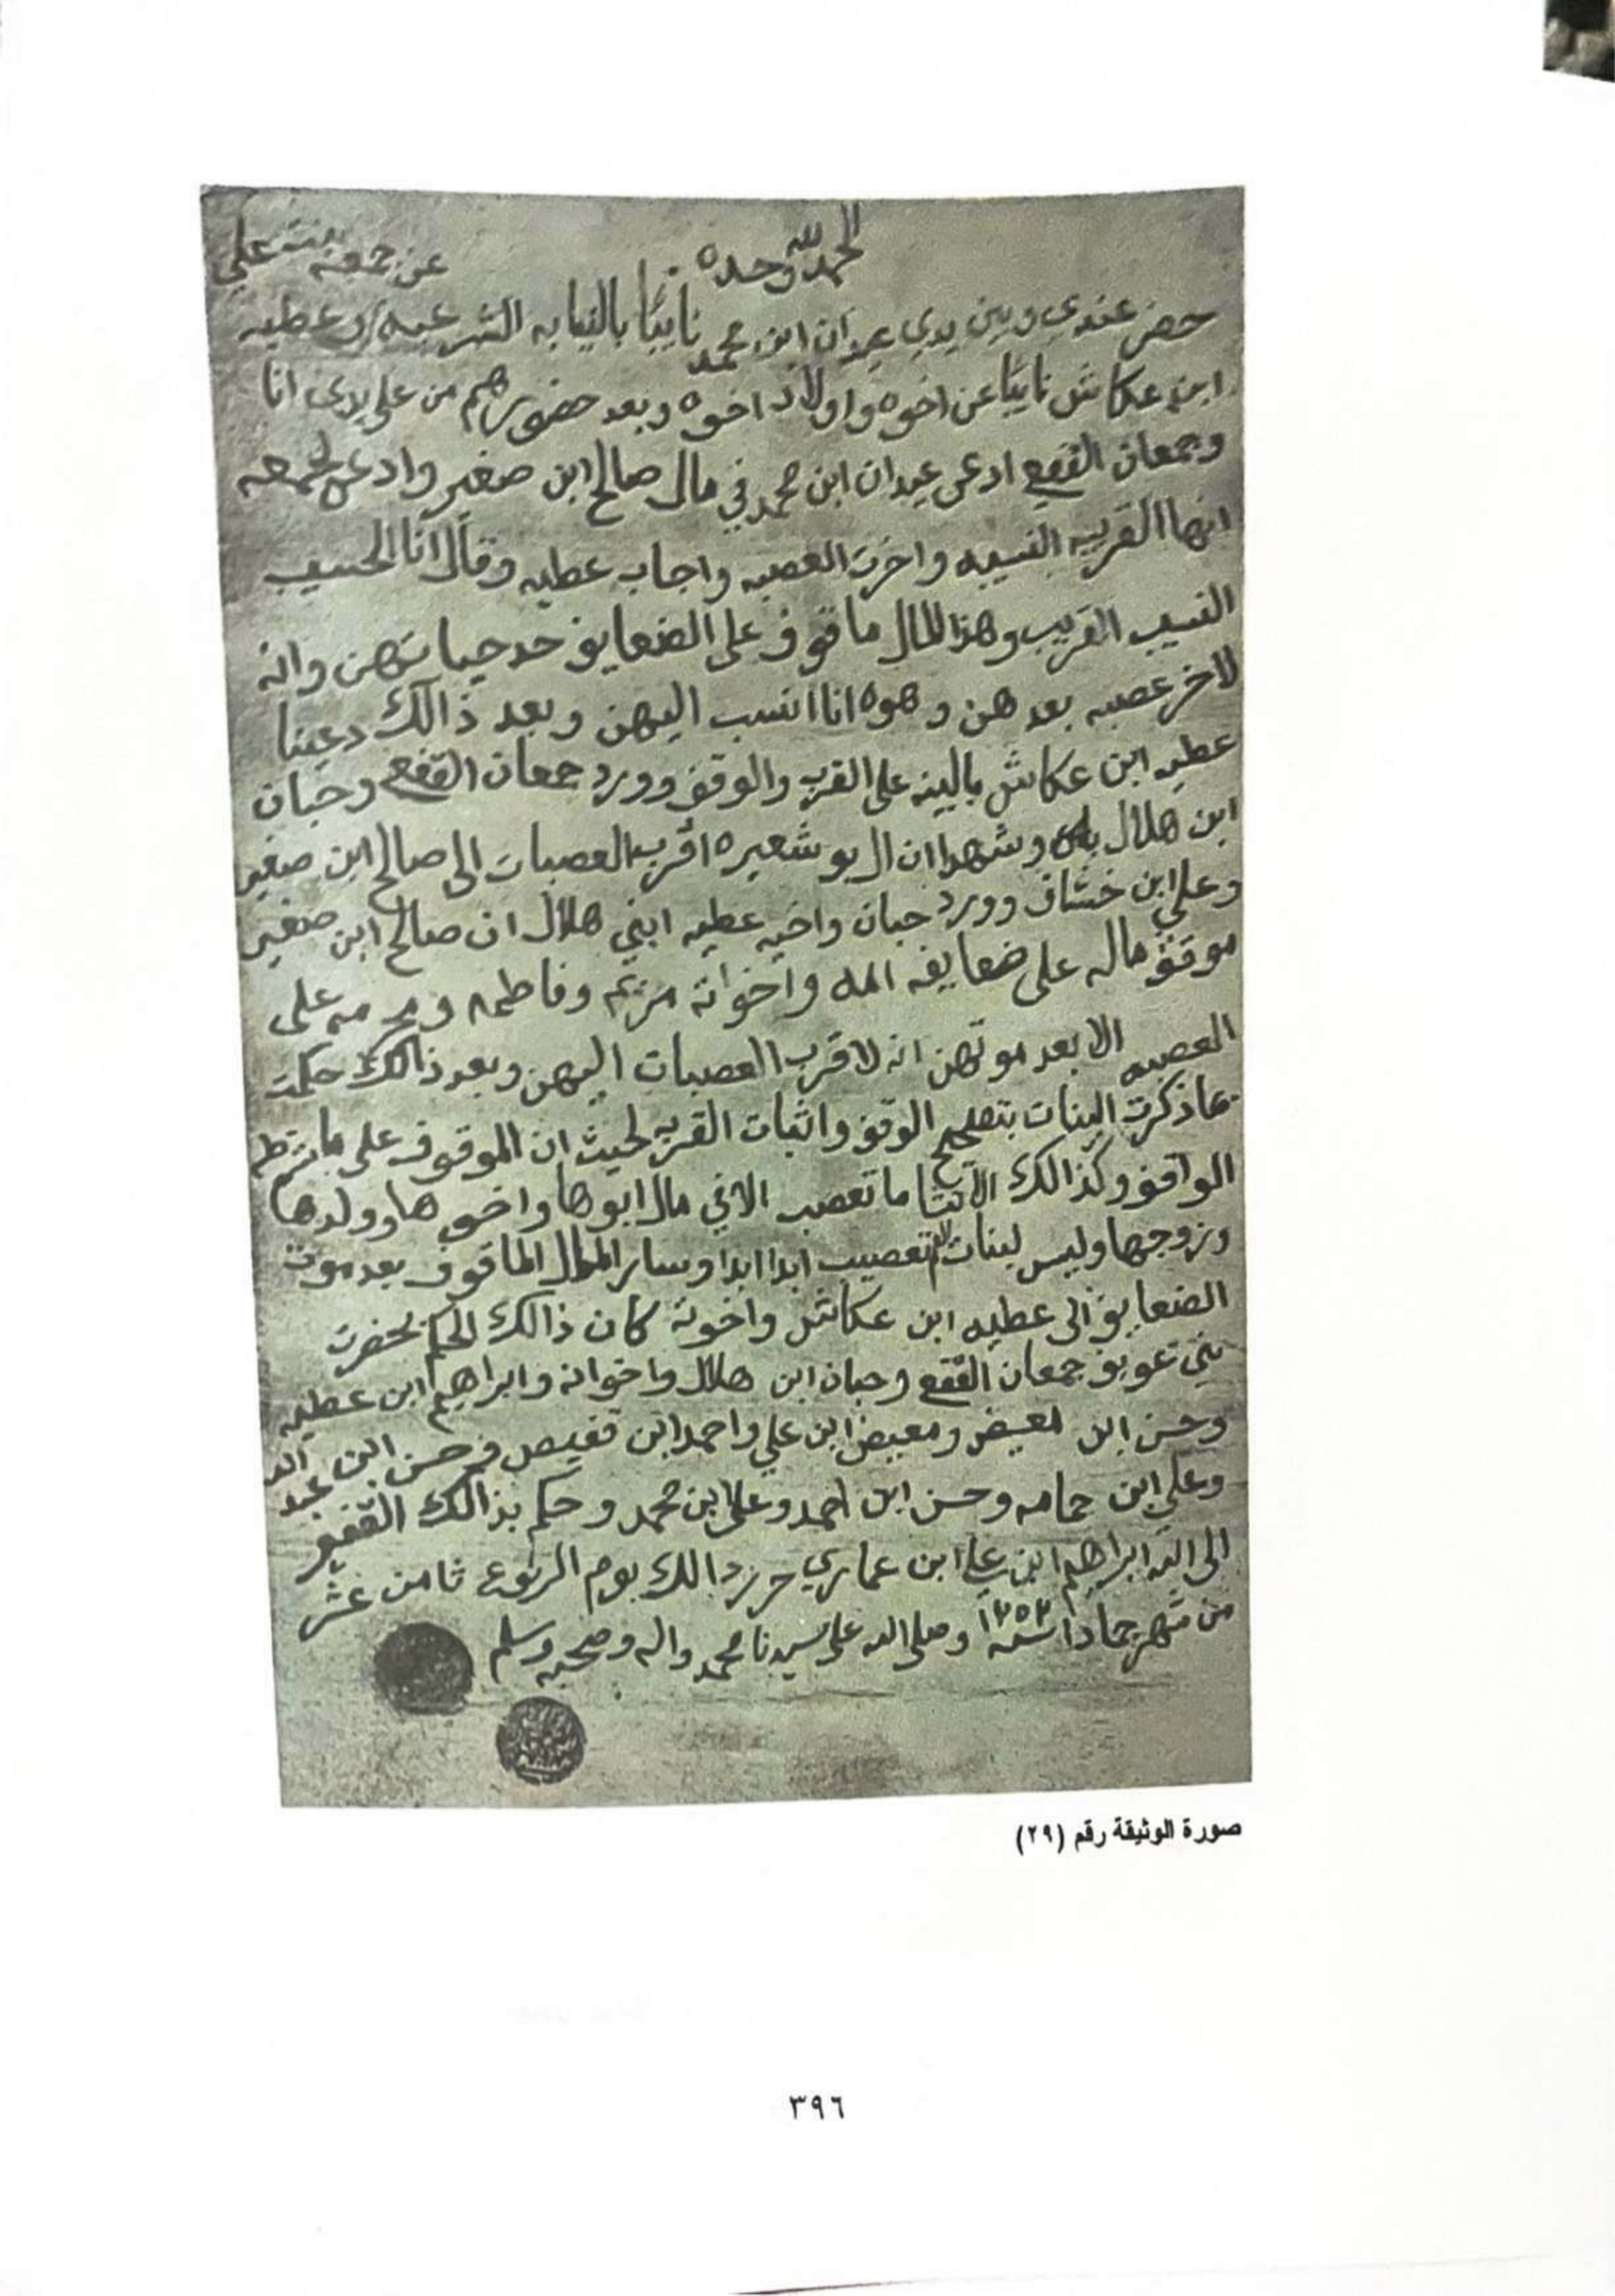 الحمد لله وحده
عن جمعه بنت علي
حضر عندي وبين يدي عيدان ابن محمد نايبًا بالنيابه الشرعيه وعطيه
ابن عكاش نايبًا عن اخوه واولاد اخوه وبعد حضورهم من على يدي انا
وجمعان القفع ادعى عيدان ابن محمد في مال صالح ابن صغير وادعى لجمعه
انها القريبه النسيبه واخرت العصبه واجاب عطيه وقال انا الحسيب
النسيب القريب وهذا المال ماقوف على الضعايف حد حياتهن وانه
لاخر عصبه بعدهن وهوه انا انسب اليهن وبعد ذالك دعينا
عطيه ابن عكاش بالبينه على القرب والوقف وورد جمعان القفع وحبان
ابن هلال وشهدا ان ال بو شعيره اقرب العصبات الى صالح ابن صغير
وعلي ابن خشاف وورد حبان واخيه عطيه ابني هلال ان صالح ابن صغير
موقف ماله على ضعايفه امه واخواته مريم وفاطمه ومحرمه على
العصبه الا بعد موتهن انه لاقرب العصبات اليهن وبعد ذالك حكمت
بما ذكرت البينات بتصحيح الوقف واثبات القربه لحيث ان الموقوف على ما شرطه
الواقف وكذالك الانثا ما تعصب الا في مال ابوها واخوها وولدها
وزوجها وليس لبنات تعصيب ابدا ابدا وساير المال الماقوف بعد موت
الضعايف الى عطيه ابن عكاش واخوته كان ذالك الحكم بحضرت
بني عويف جمعان القفع وحبان ابن هلال واخوانه وابراهيم ابن عطيه
وحسن ابن معيض ومعيض ابن علي واحمد ابن قفيص وحسن ابن عبد الله
وعلي ابن حمامه وحسن ابن احمد وعلي ابن محمد وحكم بذالك الفقير
الى الله ابراهيم ابن علي ابن عماري حرر ذالك يوم الربوع ثامن عشر
من شهر جمادا سنه ١٢٥٢ وصلى الله على سيدنا محمد واله وصحبه وسلم
صورة الوثيقة رقم (٢٩)
٣٩٦